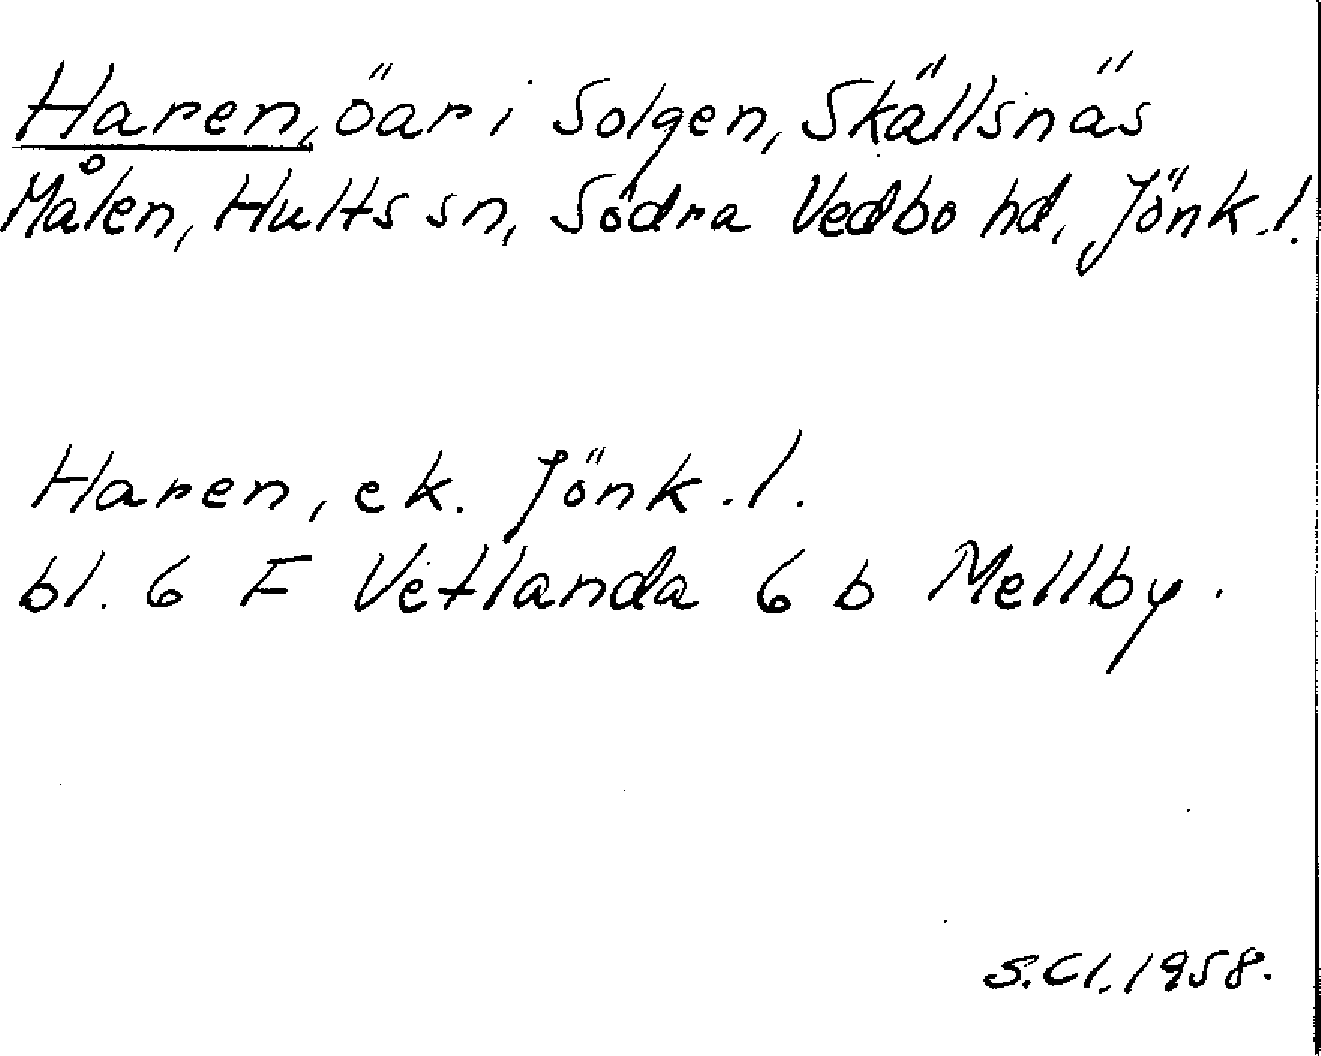 Haren, öar i Solgen, Skällsnäs
Målen, Hults sn, Södra Vedbo hd, Jönk.l.
Haren, ek. Jönk.l.
bl. 6 F Vetlanda 6 b Mellby.
S.Cl. 1958.